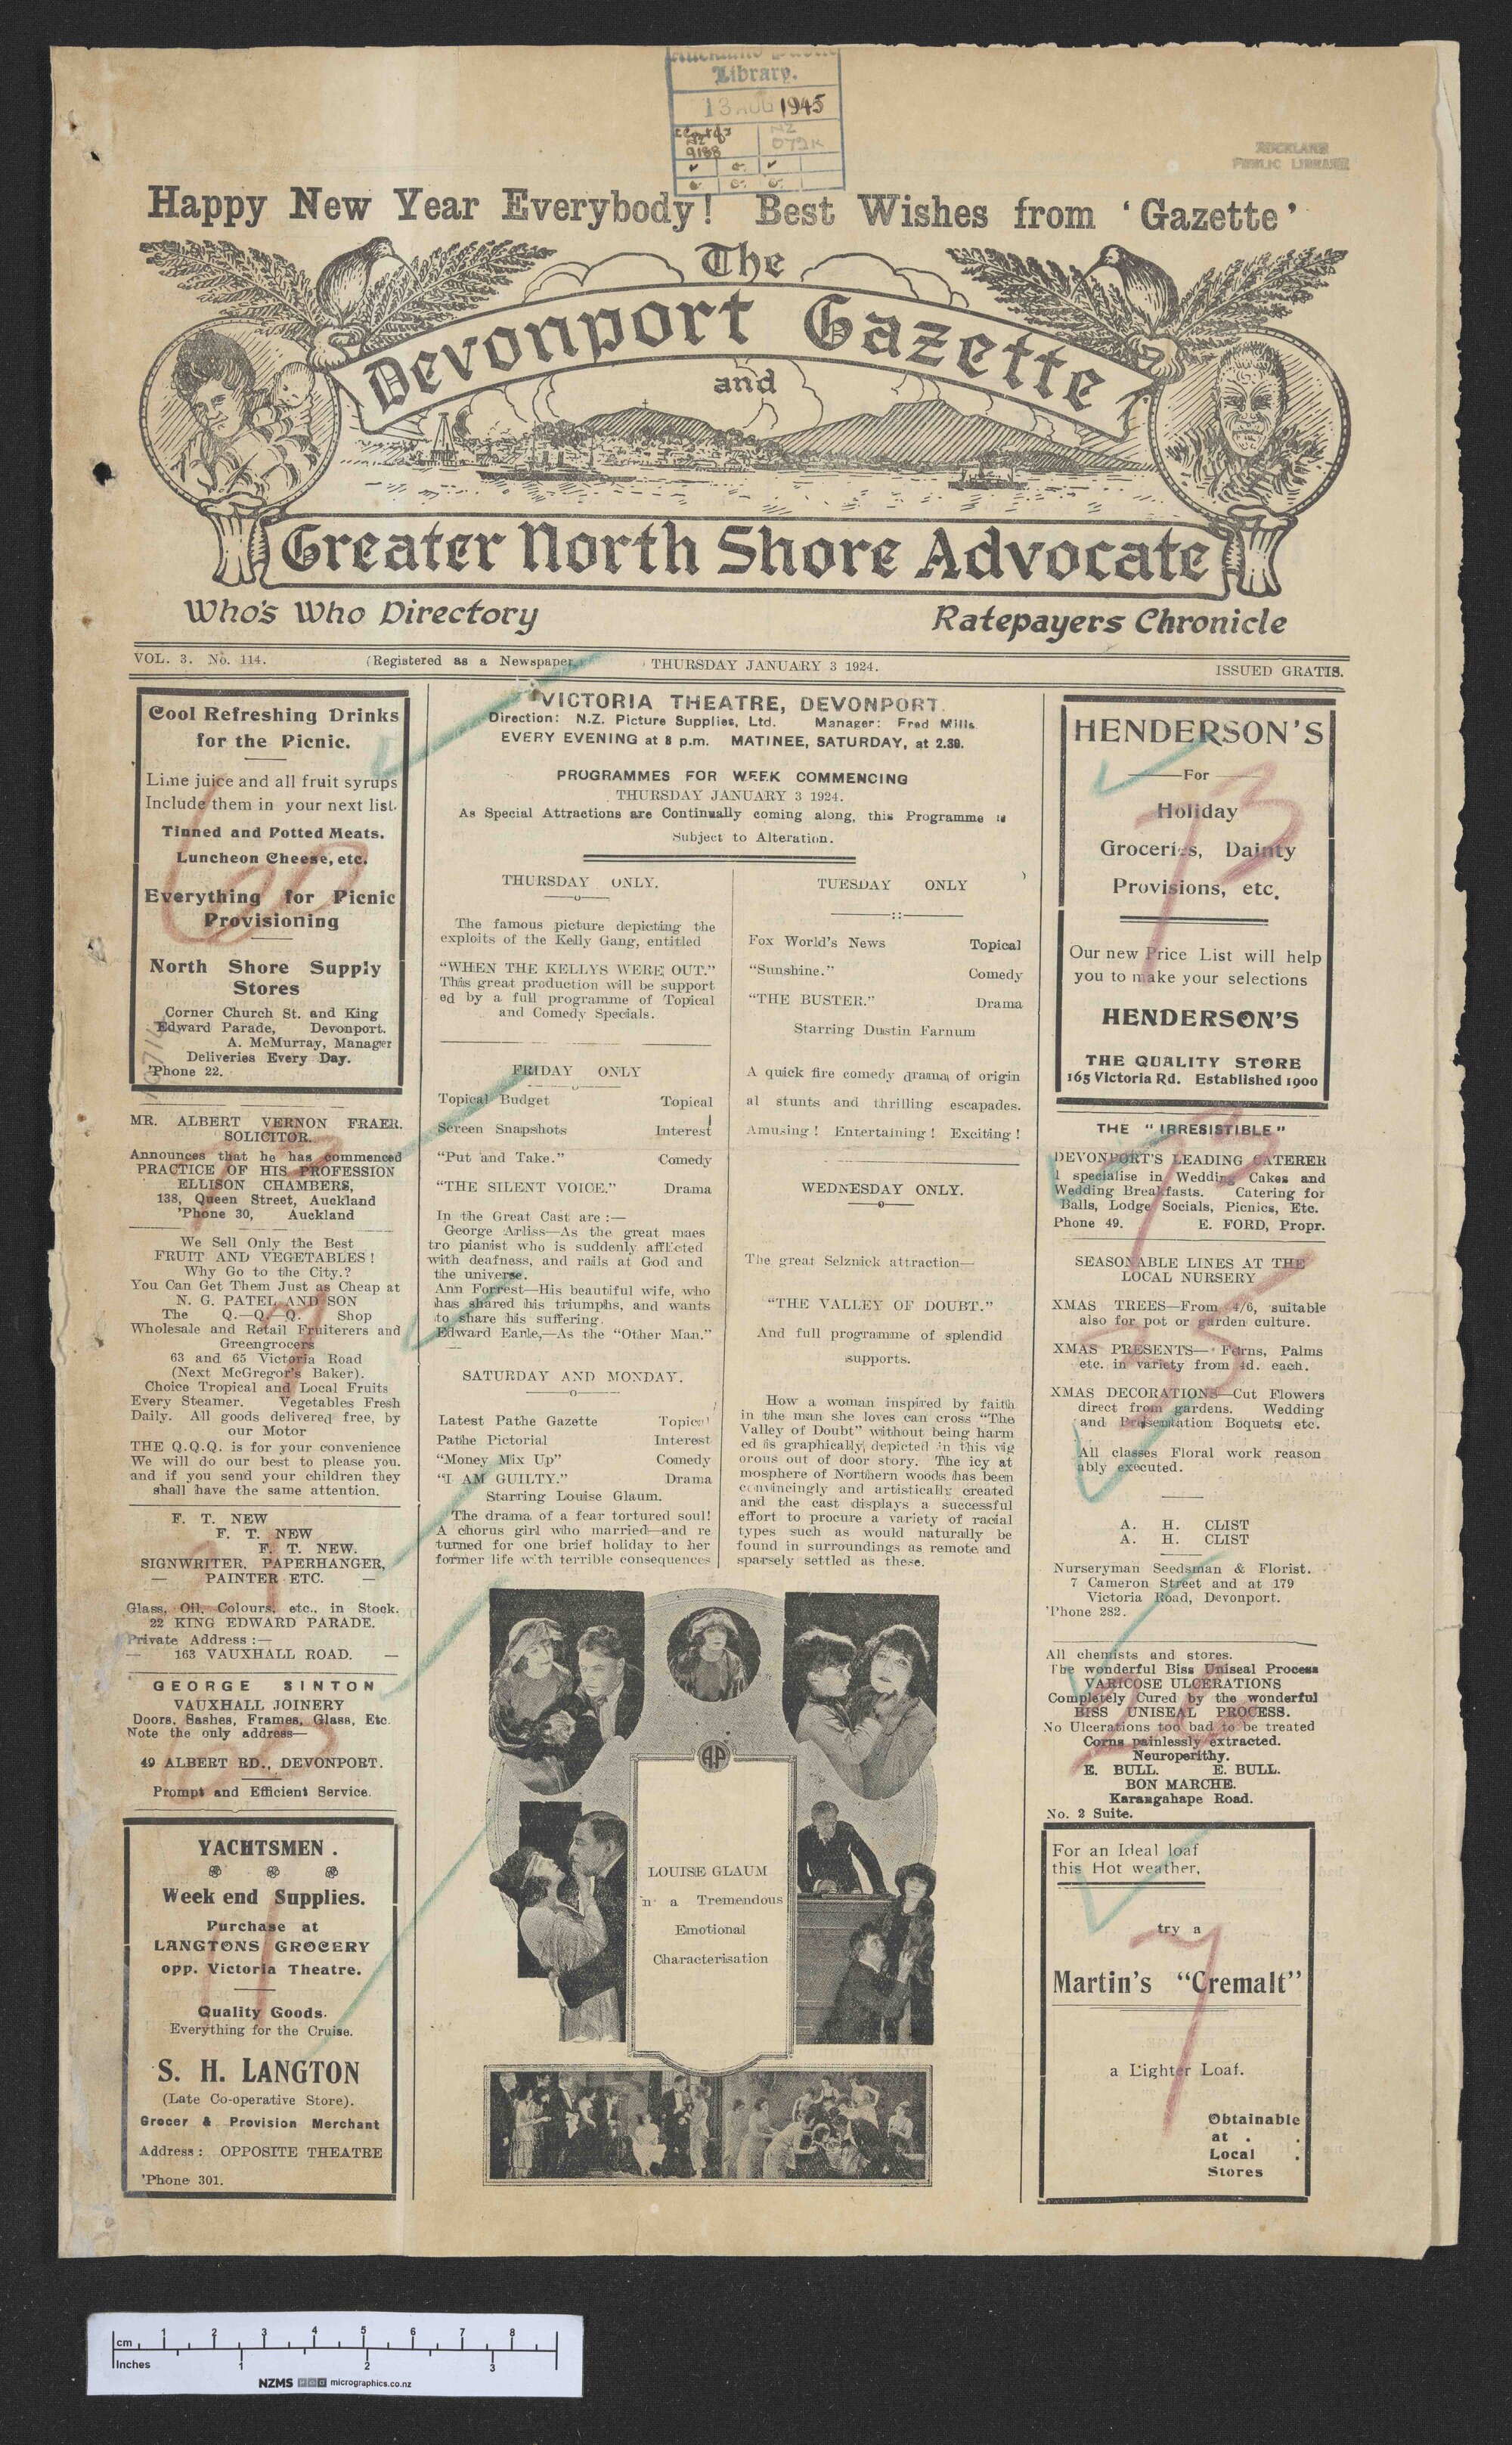 Library.
13 AUG 1945
NZ
9188
AUCKLAND
PUBLIC LIBRARY
Happy New Year Everybody! Best Wishes from ‘Gazette’
The
Devonport Gazette
and
Greater North Shore Advocate
Who's Who Directory
Ratepayers Chronicle
VOL. 3. No. 114. (Registered as a Newspaper.) THURSDAY JANUARY 3 1924. ISSUED GRATIS.
Cool Refreshing Drinks
for the Picnic.
Lime juice and all fruit syrups
Include them in your next list.
Tinned and Potted Meats.
Luncheon Cheese, etc.
Everything for Picnic
Provisioning
North Shore Supply
Stores
Corner Church St. and King
Edward Parade, Devonport.
A. McMurray, Manager
Deliveries Every Day.
'Phone 22.
MR. ALBERT VERNON FRAER.
SOLICITOR.
Announces that he has commenced
PRACTICE OF HIS PROFESSION
ELLISON CHAMBERS,
138, Queen Street, Auckland
'Phone 30, Auckland
We Sell Only the Best
FRUIT AND VEGETABLES!
Why Go to the City.?
You Can Get Them Just as Cheap at
N. G. PATEL AND SON
The Q.—Q. Q. Shop
Wholesale and Retail Fruiterers and
Greengrocers
63 and 65 Victoria Road
(Next McGregor's Baker).
Choice Tropical and Local Fruits
Every Steamer. Vegetables Fresh
Daily. All goods delivered free, by
our Motor
THE Q.Q.Q. is for your convenience
We will do our best to please you.
and if you send your children they
shall have the same attention.
F. T. NEW
F. T. NEW
F. T. NEW.
SIGNWRITER, PAPERHANGER,
— PAINTER ETC. —
Glass, Oil, Colours, etc., in Stock.
22 KING EDWARD PARADE.
Private Address :—
— 163 VAUXHALL ROAD. —
GEORGE SINTON
VAUXHALL JOINERY
Doors, Sashes, Frames, Glass, Etc.
Note the only address—
49 ALBERT RD., DEVONPORT.
Prompt and Efficient Service.
YACHTSMEN .
Week end Supplies.
Purchase at
LANGTONS GROCERY
opp. Victoria Theatre.
Quality Goods.
Everything for the Cruise.
S. H. LANGTON
(Late Co-operative Store).
Grocer & Provision Merchant
Address : OPPOSITE THEATRE
'Phone 301.
VICTORIA THEATRE, DEVONPORT.
Direction: N.Z. Picture Supplies, Ltd. Manager: Fred Mills
EVERY EVENING at 8 p.m. MATINEE, SATURDAY, at 2.30.
PROGRAMMES FOR WEEK COMMENCING
THURSDAY JANUARY 3 1924.
As Special Attractions are Continually coming along, this Programme is
Subject to Alteration.
THURSDAY ONLY.
The famous picture depicting the
exploits of the Kelly Gang, entitled
“WHEN THE KELLYS WERE OUT.”
This great production will be support
ed by a full programme of Topical
and Comedy Specials.
FRIDAY ONLY
Topical Budget Topical
Screen Snapshots Interest
“Put and Take.” Comedy
“THE SILENT VOICE.” Drama
In the Great Cast are :—
George Arliss—As the great maes
tro pianist who is suddenly afflicted
with deafness, and rails at God and
the universe.
Ann Forrest—His beautiful wife, who
has shared his triumphs, and wants
to share his suffering.
Edward Earle,—As the “Other Man.”
SATURDAY AND MONDAY.
Latest Pathe Gazette Topical
Pathe Pictorial Interest
“Money Mix Up” Comedy
“I AM GUILTY.” Drama
Starring Louise Glaum.
The drama of a fear tortured soul!
A chorus girl who married—and re
turned for one brief holiday to her
former life with terrible consequences
TUESDAY ONLY
Fox World's News Topical
“Sunshine.” Comedy
“THE BUSTER.” Drama
Starring Dustin Farnum
A quick fire comedy drama, of origin
al stunts and thrilling escapades.
Amusing! Entertaining! Exciting!
WEDNESDAY ONLY.
The great Selznick attraction—
“THE VALLEY OF DOUBT.”
And full programme of splendid
supports.
How a woman inspired by faith
in the man she loves can cross “The
Valley of Doubt” without being harm
ed is graphically, depicted in this vig
orous out of door story. The icy at
mosphere of Northern woods has been
convincingly and artistically created
and the cast displays a successful
effort to procure a variety of racial
types such as would naturally be
found in surroundings as remote and
sparsely settled as these.
AP
LOUISE GLAUM
in a Tremendous
Emotional
Characterisation
HENDERSON'S
For
Holiday
Groceries, Dainty
Provisions, etc.
Our new Price List will help
you to make your selections
HENDERSON'S
THE QUALITY STORE
165 Victoria Rd. Established 1900
THE “IRRESISTIBLE”
DEVONPORT'S LEADING CATERER
I specialise in Wedding Cakes and
Wedding Breakfasts. Catering for
Balls, Lodge Socials, Picnics, Etc.
Phone 49. E. FORD, Propr.
SEASONABLE LINES AT THE
LOCAL NURSERY
XMAS TREES—From 4/6, suitable
also for pot or garden culture.
XMAS PRESENTS— Ferns, Palms
etc. in variety from 4d. each.
XMAS DECORATIONS—Cut Flowers
direct from gardens. Wedding
and Presentation Boquets etc.
All classes Floral work reason
ably executed.
A. H. CLIST
A. H. CLIST
Nurseryman Seedsman & Florist.
7 Cameron Street and at 179
Victoria Road, Devonport.
'Phone 282.
All chemists and stores.
The wonderful Biss Uniseal Process
VARICOSE ULCERATIONS
Completely Cured by the wonderful
BISS UNISEAL PROCESS.
No Ulcerations too bad to be treated
Corns painlessly extracted.
Neuroperithy.
E. BULL. E. BULL.
BON MARCHE.
Karangahape Road.
No. 2 Suite.
For an Ideal loaf
this Hot weather,
try a
Martin's “Cremalt”
a Lighter Loaf.
Obtainable
at
Local
Stores
cm 1 2 3 4 5 6 7 8
Inches 1 2 3
NZMS micrographics.co.nz